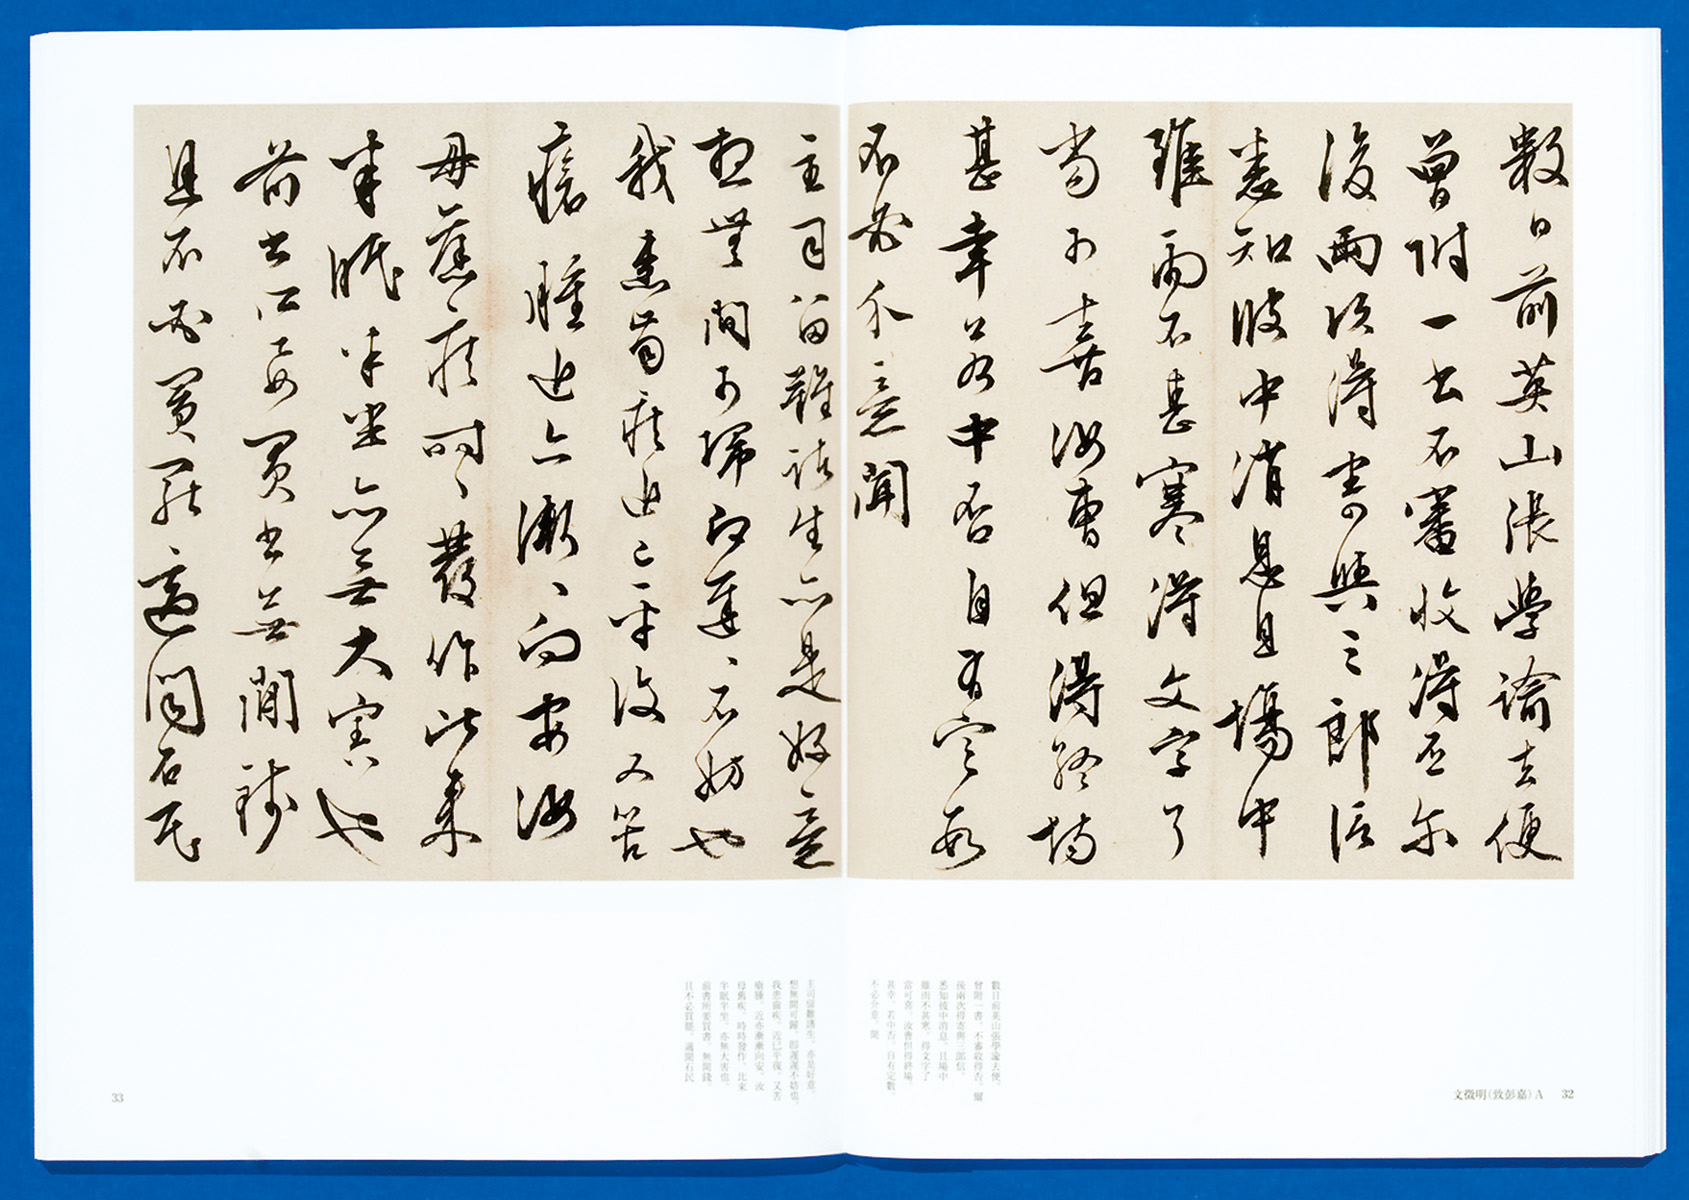 數日前英山張學諭去便
曾附一書不審收得否爾
後兩次得寄與三郎信
悉知彼中消息且場中
雖雨不甚寒得文字了
當可喜汝曹但得終場
甚幸若中否自有定數
不必介意聞
主司留難諸生亦是好意
想無間可歸即遲遲不妨也
我患齒疾近已平復又苦
瘡腫近亦漸漸向安汝
母舊疾時時發作比來
半眠半坐亦無大害也
前書所要買書無閒錢
且不必買罷適聞石民
數日前英山張學諭去便,
曾附一書,不審收得否。爾
後兩次得寄與三郎信,
悉知彼中消息。且場中
雖雨不甚寒。得文字了
當可喜。汝曹但得終場,
甚幸。若中否,自有定數,
不必介意。聞
主司留難諸生,亦是好意,
想無間可歸,即遲遲不妨也。
我患齒疾,近已平復,又苦
瘡腫,近亦漸漸向安。汝
母舊疾,時時發作,比來
半眠半坐,亦無大害也。
前書所要買書,無閒錢,
且不必買罷。適聞石民
文徵明(致彭嘉)A 32
33